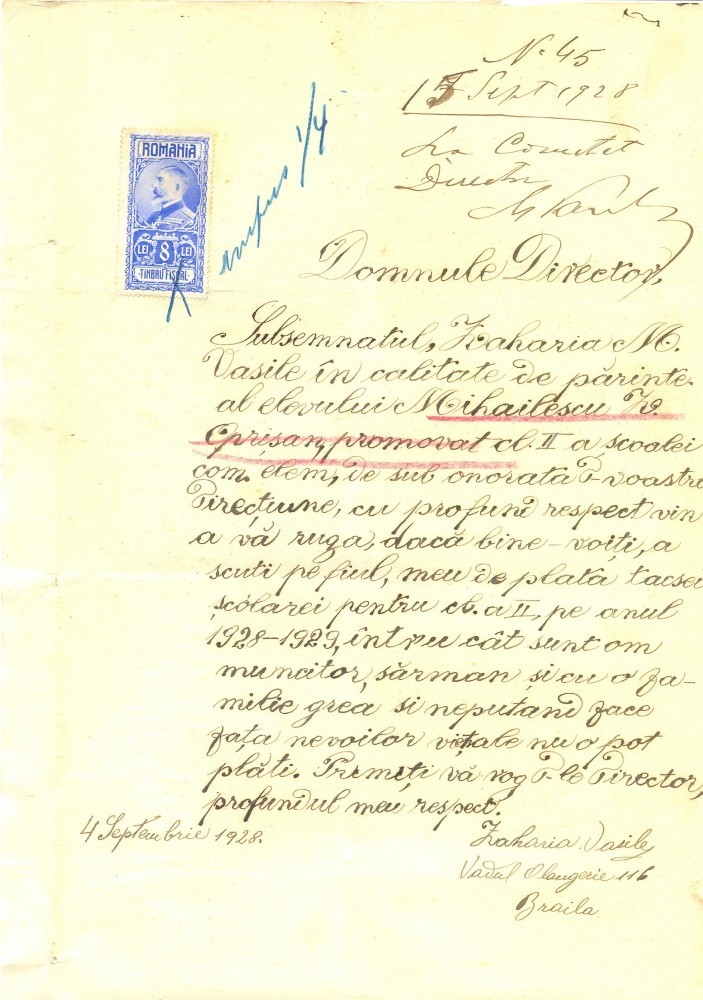 No 45
15 Sept 1928
La Comitet
Director
ROMANIA
LEI 8 LEI
TIMBRU FISCAL
Domnule Director,
Subsemnatul, Zaharia M.
Vasile în calitate de părinte
al elevului Mihailescu Z.
Oprișan, promovat cl. II a școalei
com. elem, de sub onorata D-voastră
Direcțiune, cu profund respect vin
a vă ruga, dacă bine-voiți, a
scuti pe fiul, meu de plata tacsei
școlarei pentru cl. a II, pe anul
1928-1929, întru cât sunt om
muncitor, sărman și cu o fa-
milie grea si neputând face
fața nevoilor vitale nu o pot
plăti. Primiți vă rog D-le Director,
profundul meu respect.
4 Septembrie 1928.
Zaharia Vasile
Vadul Olangerie 116
Braila